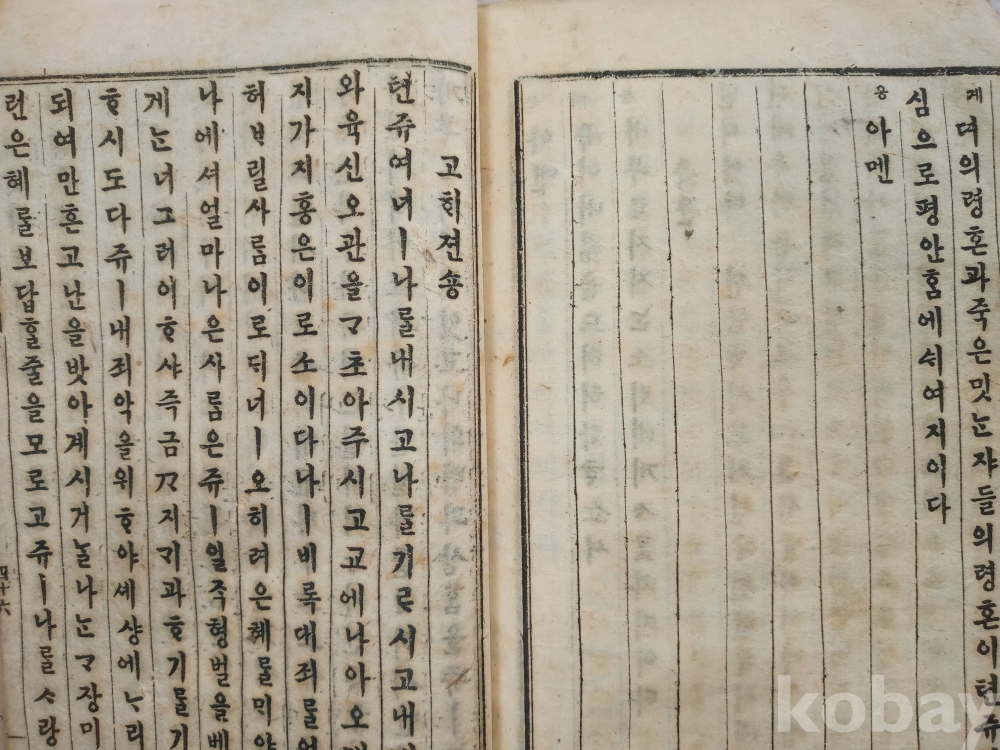 며의령혼과죽은밋ᄂᆞᆫ쟈들의령혼이텬쥬
심으로평안ᄒᆞᆷ에쉬여지이다
응 아멘
고ᄒᆡ젼숑
텬쥬여너ㅣ나ᄅᆞᆯ내시고나ᄅᆞᆯ기ᄅᆞ시고내
와육신오관을ᄀᆞ초아주시고교에나아오
지가지홍은이로소이다나ㅣ비록대죄ᄅᆞᆯ
허ᄇᆞ릴사ᄅᆞᆷ이로ᄃᆡ너ㅣ오히려은혜ᄅᆞᆯ
나에셔얼마나은사ᄅᆞᆷ은쥬ㅣ일즉형벌을베
게ᄂᆞᆫ너그러이ᄒᆞ샤즉금ᄭᆞ지기과ᄒᆞ기ᄅᆞᆯ기
ᄒᆞ시도다쥬ㅣ내죄악을위ᄒᆞ야셰샹에ᄂᆞ리
되여만흔고난을밧아계시거ᄂᆞᆯ나ᄂᆞᆫᄀᆞ장미
런은혜ᄅᆞᆯ보답ᄒᆞᆯ줄을모로고쥬ㅣ나ᄅᆞᆯᄉᆞ랑
四十六
kobay